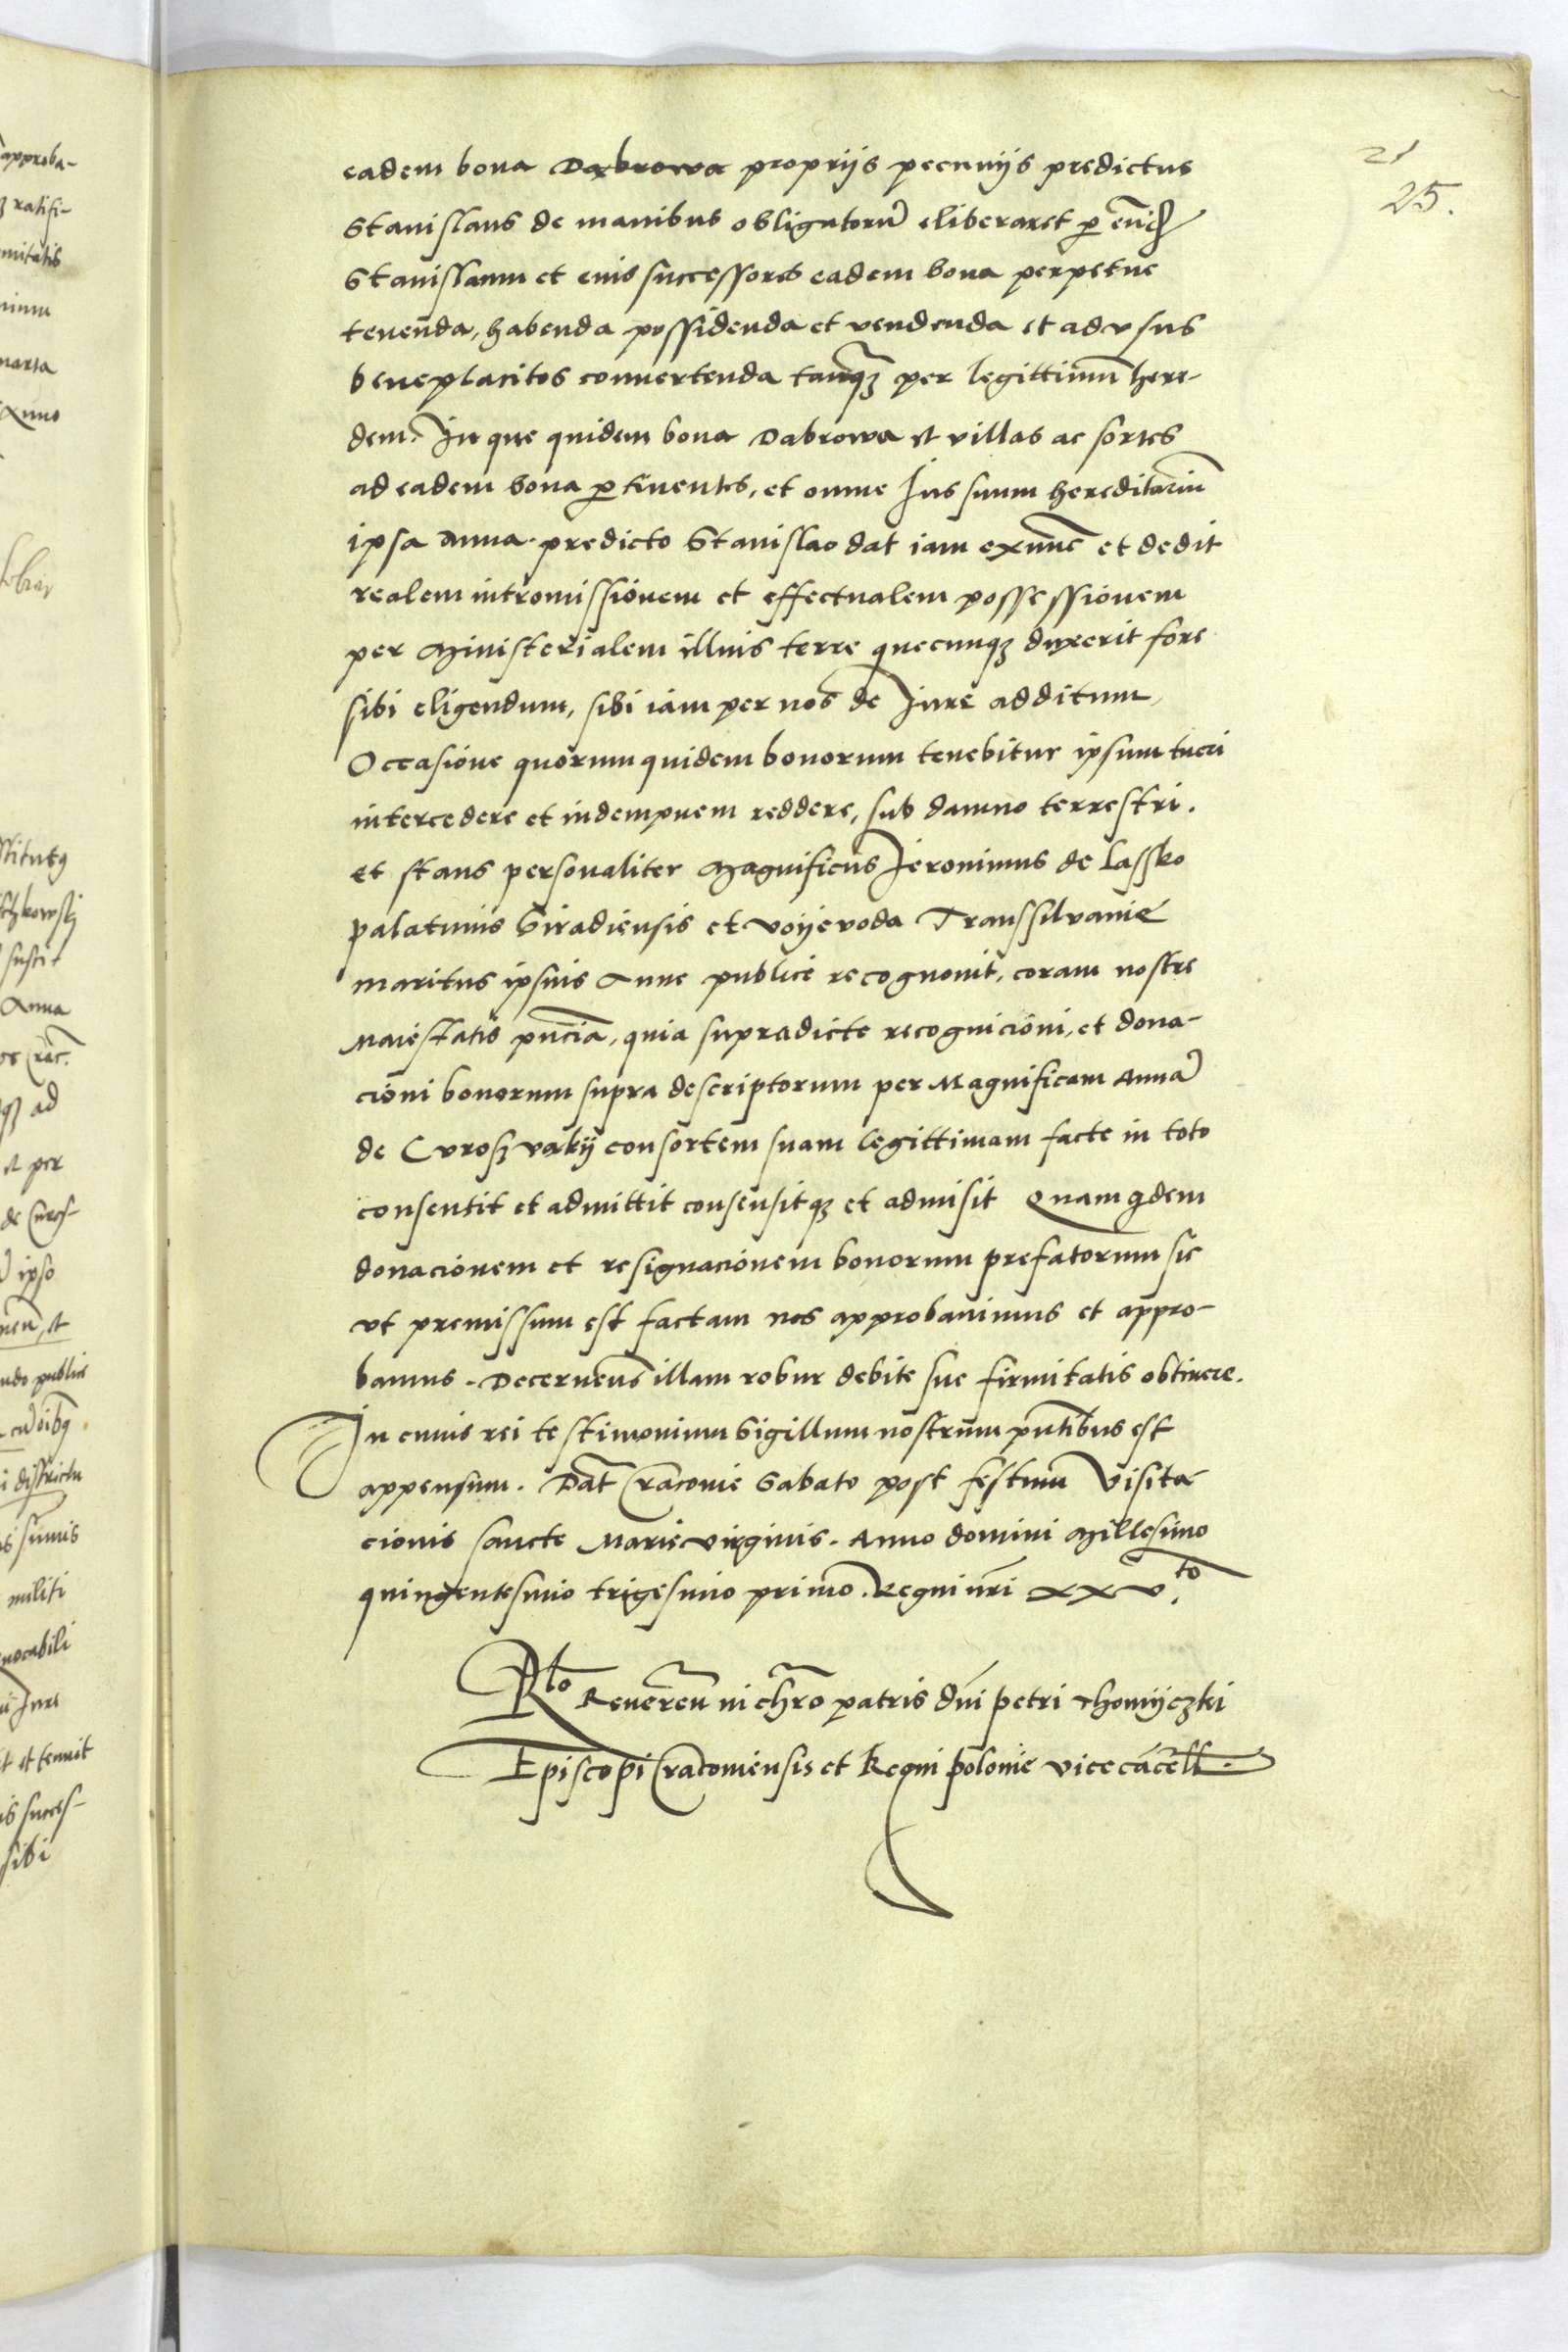 21
25.
eadem bona Dabrowa proprijs pecunijs predictus
Stanislaus de manibus obligatorũ eliberaret ꝑ eũdẽ
Stanislaum et eius successores eadem bona perpetue
tenenda, habenda possidenda et vendenda et ad vsus
beneplacitos conuertenda tanꝗ̃ per legittimũ here-
dem. In que quidem bona Dabrowa et villas ac sortes
ad eadem bona ꝑtinentes, et omne Ius suum hereditariũ
ipsa Anna predicto Stanislao dat iam exnũc et dedit
realem intromissionem et effectualem possessionem
per Ministerialem illius terre quecunqꝫ duxerit fore
sibi eligendum, sibi iam per nos de Iure additum,
Occasione quorum quidem bonorum tenebitur ipsum tueri
intercedere et indempnem reddere, sub damno terrestri.
et stans personaliter Magnificus Ieronimus de Lassko
palatinus Siradiensis et voijevoda Transsilvanie
maritus ipsius Anne publice recognouit, coram nostre
Maiestatis pñcia, quia supradicte recognicioni, et dona-
cioni bonorum supra descriptorum per Magnificam Annã
de Curoszvakij consortem suam legittimam facte in toto
consentit et admittit consensitqꝫ et admisit Quam qdem
donacionem et resignacionem bonorum prefatorum sic
vt premissum est factam nos approbauimus et appro-
bamus. Decernens illam robur debite sue firmitatis obtinere.
In cuius rei testimonium Sigillum nostrum pñtibus est
appensum. Dat̃ Cracouie Sabato post festum Visita
cionis sancte Marie virginis. Anno domini Millesimo
quingentesimo trigesimo primo. Regni nr̃i xxv.to
Rlo Reueren̄ in chr̃o patris dñi petri Thomijczki
Episcopi Cracouiensis et Regni polonie vicecãcell.
approba-
ratifi-
Anna
ad
et per
ipso
militi
sibi